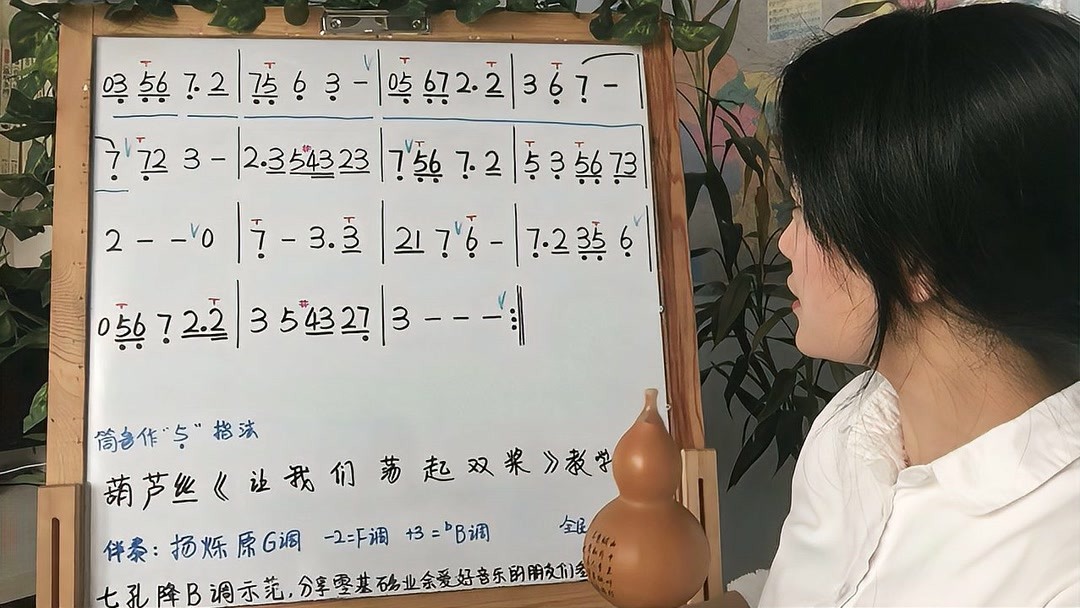 03 56 7. 2 | 75 6 3 - | 05 67 2. 2 | 3 6 7 - |
7 72 3 - | 2.3 5#43 23 | 7 56 7. 2 | 5 3 56 73 |
2 - - 0 | 7 - 3. 3 | 21 7 6 - | 7.2 35 6 |
0 56 7 2.2 | 3 5 #43 27 | 3 - - - :‖
筒音作"5"指法
葫芦丝《让我们荡起双桨》教学
伴奏: 扬烁原G调 -2=F调 +3=ᵇB调
七孔降B调示范,分享零基础业余爱好音乐的朋友们